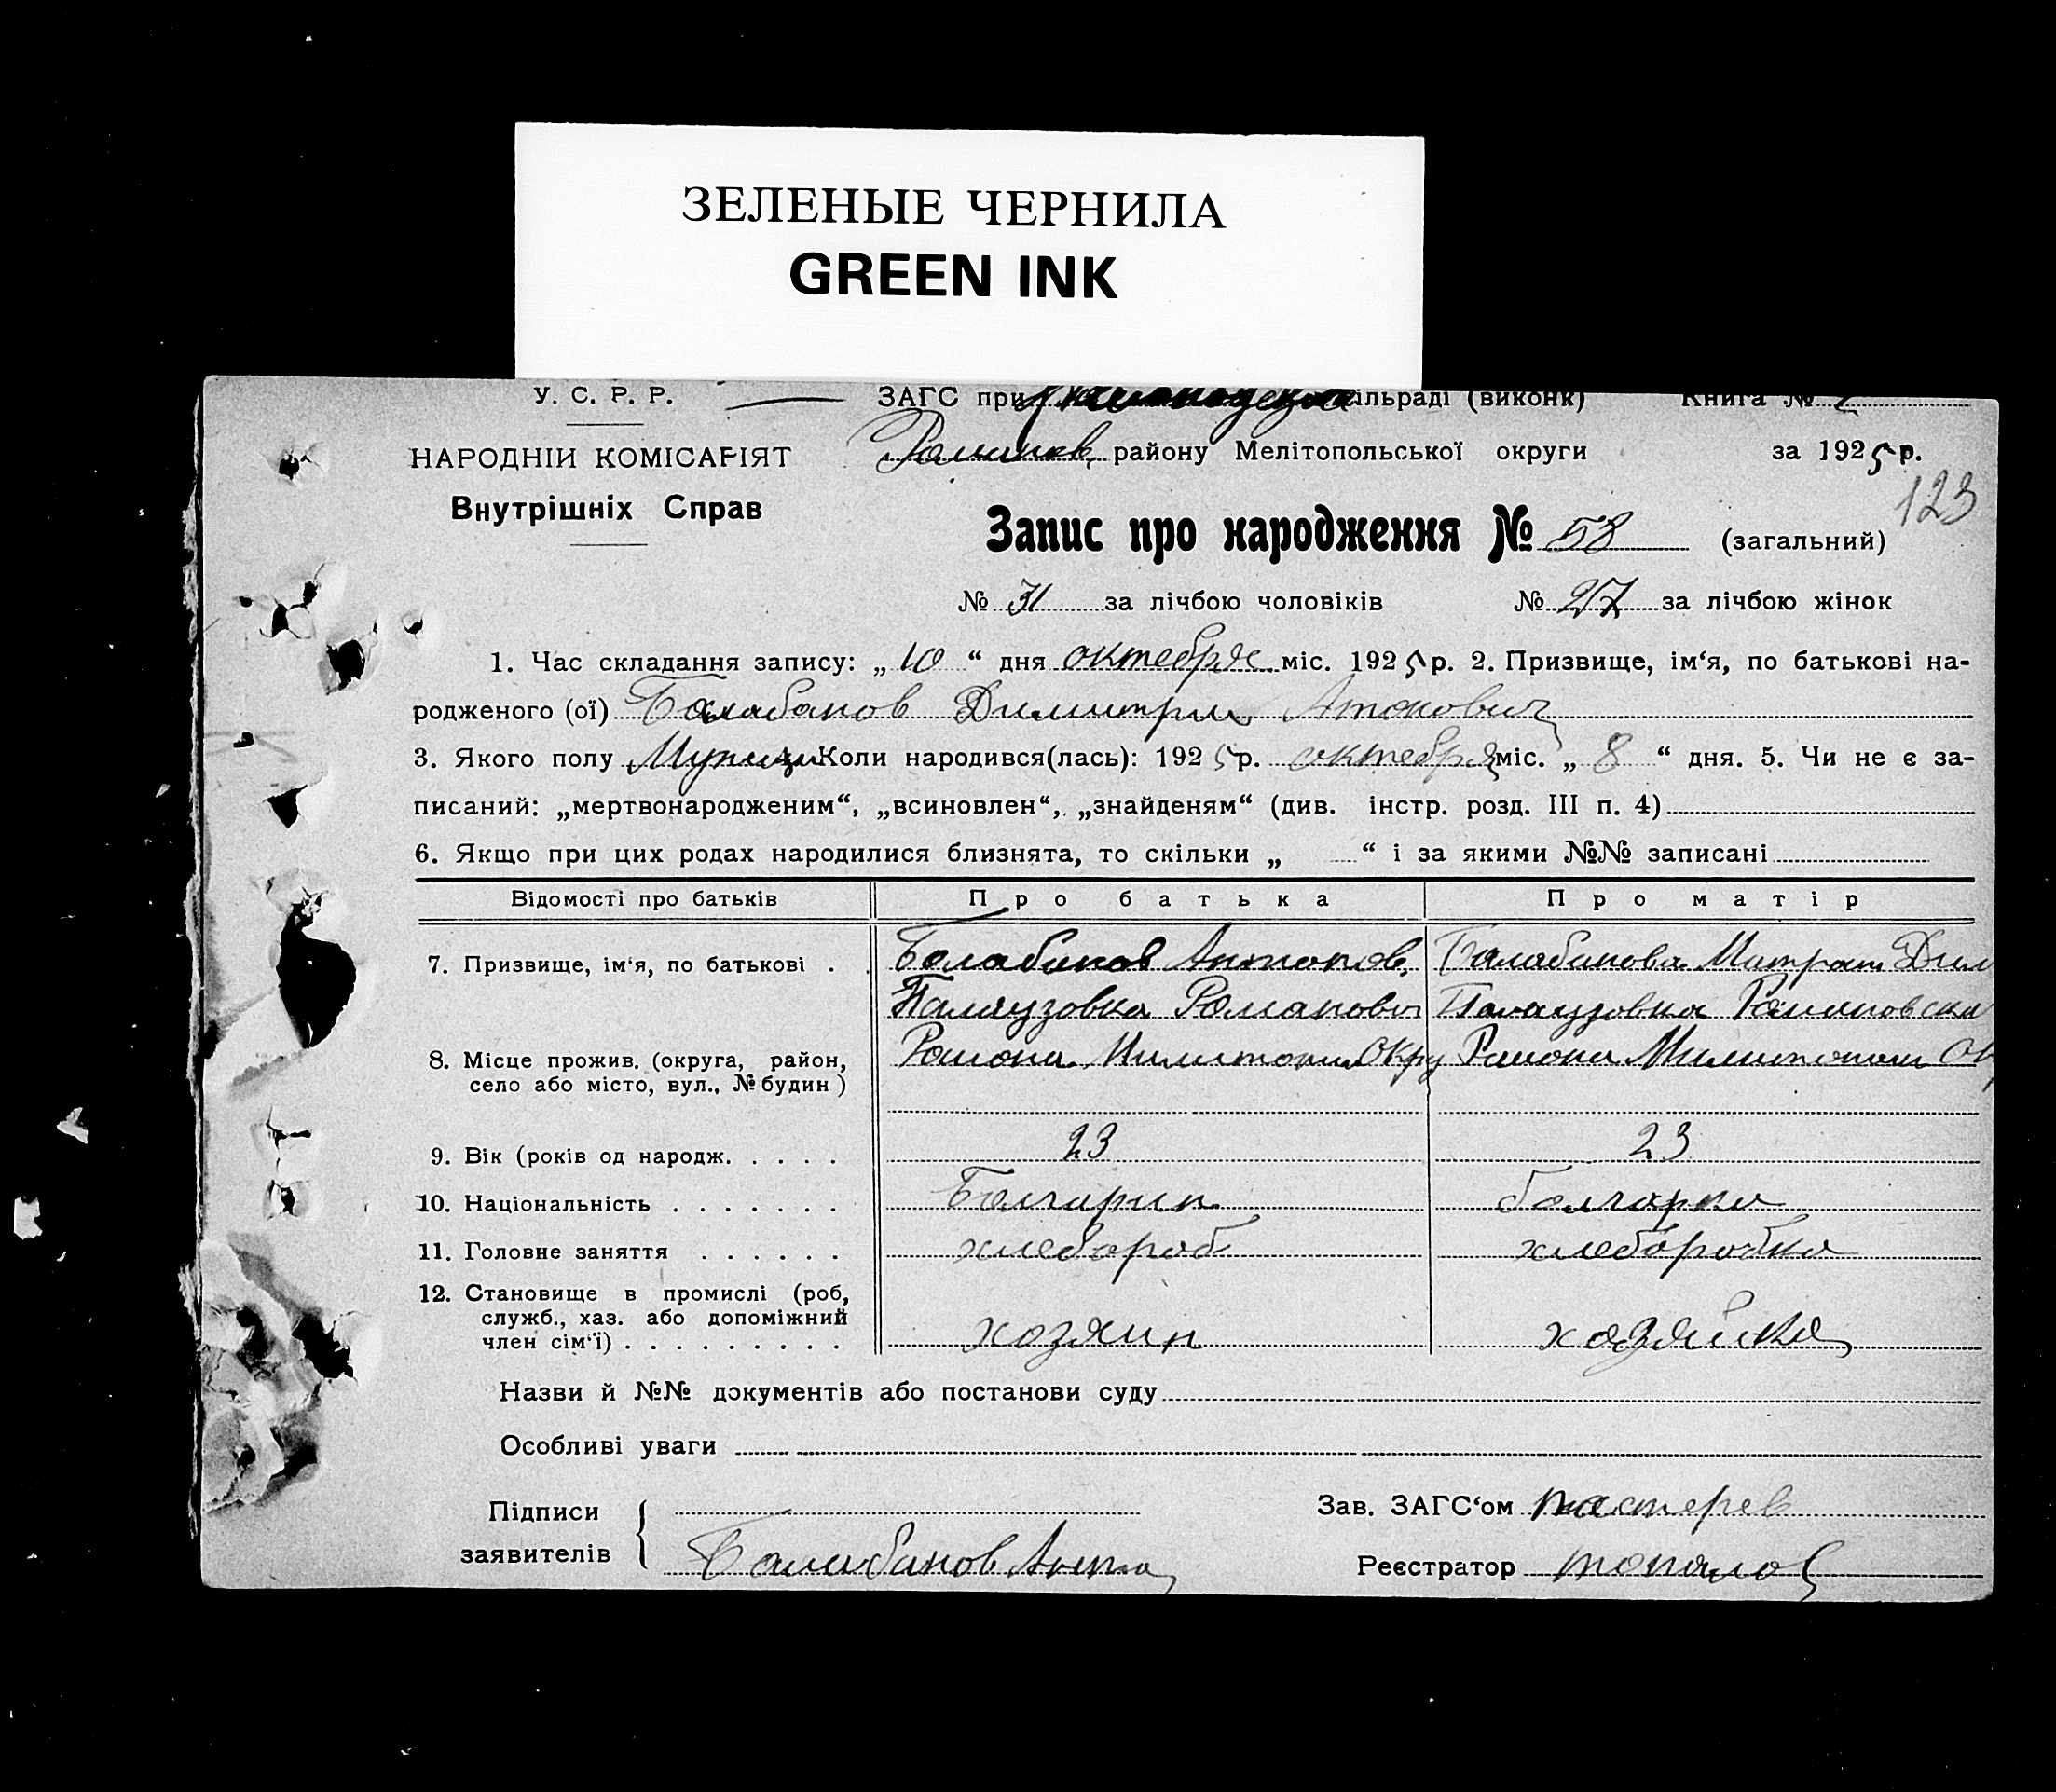 ЗЕЛЕНЫЕ ЧЕРНИЛА
GREEN INK
У. С. Р. Р. ЗАГС при ільраді (виконк) Книга №
НАРОДНІЙ КОМІСАРІЯТ району Мелітопольської округи за 1925 р.
Внутрішніх Справ
123
Запис про народження № 58 (загальний)
№ 31 за лічбою чоловіків № 27 за лічбою жінок
1. Час складання запису: „ 10 “ дня октебря міс. 1925 р. 2. Призвище, ім‘я, по батькові на-
родженого (ої) Балабанов Димитри Атонович
3. Якого полу Коли народився(лась): 1925 р. октебря міс. „ 8 “ дня. 5. Чи не є за-
писаний: „мертвонародженим“, „всиновлен“, „знайденям“ (див. інстр. розд. III п. 4)
6. Якщо при цих родах народилися близнята, то скільки „ “ і за якими №№ записані
Відомості про батьків Про батька Про матір
7. Призвище, ім‘я, по батькові . . Балабанов Антонов, Балабанова Дим
Палаузовка Романовск
8. Місце прожив. (округа, район, Района Окру Района
село або місто, вул., № будин )
9. Вік (років од народж. . . . . 23 23
10. Національність . . . . . . . Болгарин болгарка
11. Головне заняття . . . . . . хлебороб хлеборобка
12. Становище в промислі (роб,
служб., хаз. або допоміжний
член сім‘ї) . . . . . . . . . хозяин хазяйка
Назви й №№ документів або постанови суду
Особливі уваги
Підписи Зав. ЗАГС‘ом пастерев
заявителів Балабанов Анто Реєстратор топалов